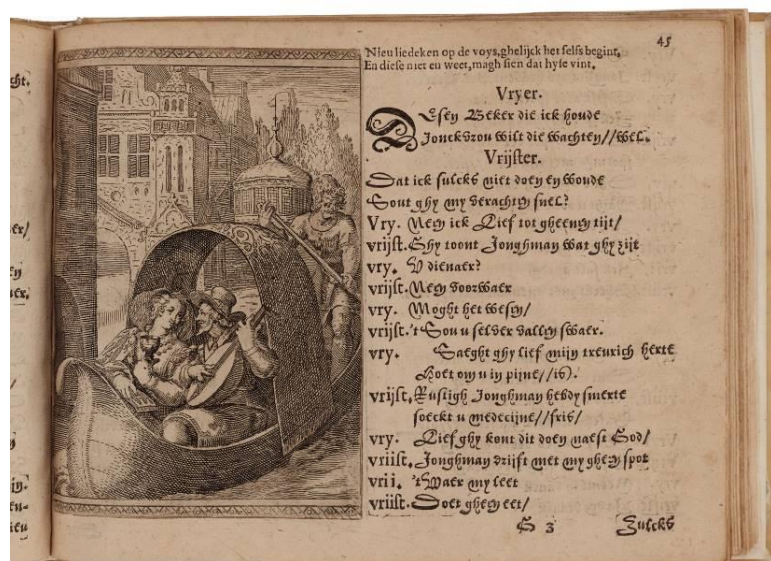 cht.
er/
en
aer,
/
n
jn-
en-
ieu
45
Nieu liedeken op de voys, ghelijck het selfs begint,
En diese niet en weet, magh sien dat hyse vint.
Vryer.
Desen Beker die ick houde
Jonckvrou wilt die wachten//wel.
Vrijster.
Dat ick sulcks niet doen en woude
Sout ghy my verachten snel?
Vry. Neen ick Lief tot gheenen tijt/
vrijst. Ghy toont Jonghman wat ghy zijt
vry. V dienaer?
vrijst. Neen voorwaer
vry. Moght het wesen/
vrijst. 't Sou u selver vallen swaer.
vry. Saeght ghy lief mijn treurich herte
Hoet om u in pijne//is).
vrijst. Rustigh Jonghman hebdy smerte
soeckt u medecijne//fris/
vry. Lief ghy kont dit doen naest God/
vriist. Jonghman drijft met my gheen spot
vrii. 'tWaer my leet
vriist. Doet gheen eet/
G 3 Zulcks